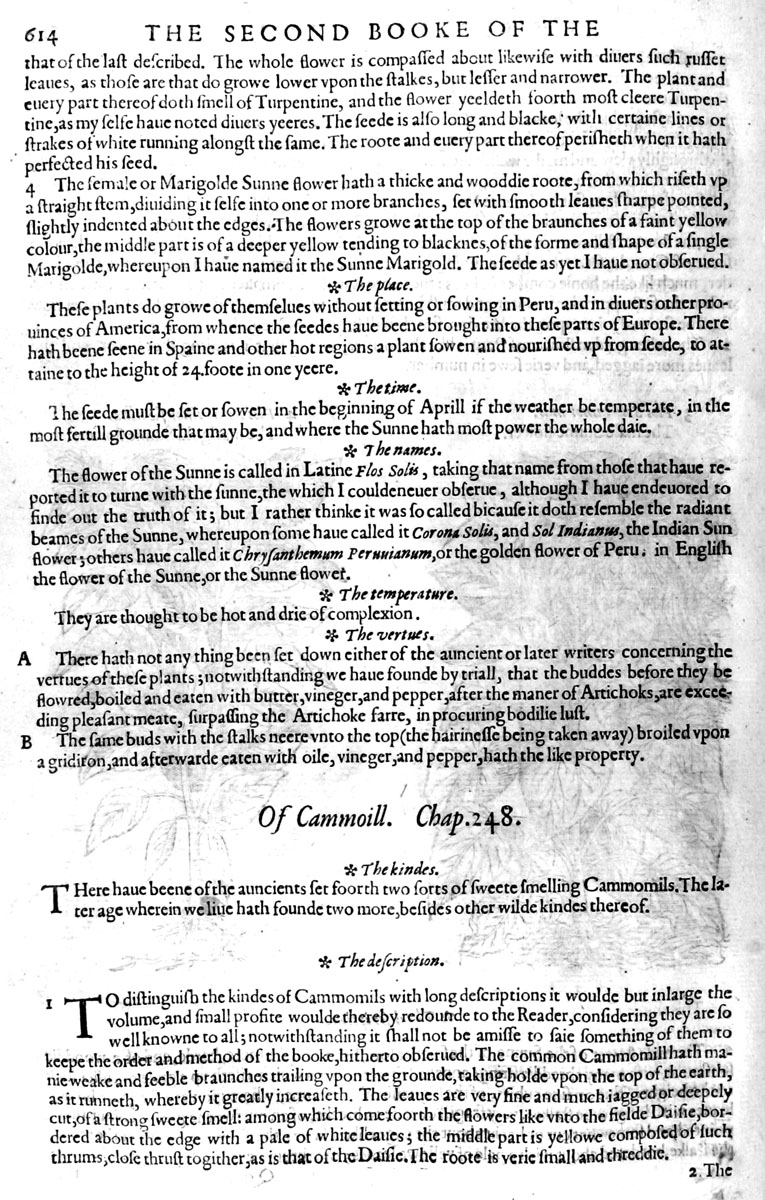 614 THE SECOND BOOKE OF THE
that of the laſt deſcribed. The whole flower is compaſſed about likewiſe with diuers ſuch ruſſet
leaues, as thoſe are that do growe lower vpon the ſtalkes, but leſſer and narrower. The plant and
euery part thereof doth ſmell of Turpentine, and the flower yeeldeth foorth moſt cleere Turpen-
tine, as my ſelfe haue noted diuers yeeres. The ſeede is alſo long and blacke, with certaine lines or
ſtrakes of white running alongſt the ſame. The roote and euery part thereof periſheth when it hath
perfected his ſeed.
4 The female or Marigolde Sunne flower hath a thicke and wooddie roote, from which riſeth vp
a ſtraight ſtem, diuiding it ſelfe into one or more branches, ſet with ſmooth leaues ſharpe pointed,
ſlightly indented about the edges. The flowers growe at the top of the braunches of a faint yellow
colour, the middle part is of a deeper yellow tending to blacknes, of the forme and ſhape of a ſingle
Marigolde, whereupon I haue named it the Sunne Marigold. The ſeede as yet I haue not obſerued.
✻ The place.
Theſe plants do growe of themſelues without ſetting or ſowing in Peru, and in diuers other pro-
uinces of America, from whence the ſeedes haue beene brought into theſe parts of Europe. There
hath beene ſeene in Spaine and other hot regions a plant ſowen and nouriſhed vp from ſeede, to at-
taine to the height of 24. foote in one yeere.
✻ The time.
The ſeede muſt be ſet or ſowen in the beginning of Aprill if the weather be temperate, in the
moſt fertill grounde that may be, and where the Sunne hath moſt power the whole daie.
✻ The names.
The flower of the Sunne is called in Latine Flos Solis, taking that name from thoſe that haue re-
ported it to turne with the ſunne, the which I could neuer obſerue, although I haue endeuored to
finde out the truth of it; but I rather thinke it was ſo called bicauſe it doth reſemble the radiant
beames of the Sunne, whereupon ſome haue called it Corona Solis, and Sol Indianus, the Indian Sun
flower; others haue called it Chryſanthemum Peruuianum, or the golden flower of Peru: in Engliſh
the flower of the Sunne, or the Sunne flower.
✻ The temperature.
They are thought to be hot and drie of complexion.
✻ The vertues.
A There hath not any thing been ſet down either of the auncient or later writers concerning the
vertues of theſe plants; notwithſtanding we haue founde by triall, that the buddes before they be
flowred, boiled and eaten with butter, vineger, and pepper, after the maner of Artichoks, are excee-
ding pleaſant meate, ſurpaſſing the Artichoke farre, in procuring bodilie luſt.
B The ſame buds with the ſtalks neere vnto the top (the hairineſſe being taken away) broiled vpon
a gridiron, and afterwarde eaten with oile, vineger, and pepper, hath the like property.
Of Cammoill. Chap. 248.
✻ The kindes.
THere haue beene of the auncients ſet foorth two ſorts of ſweete ſmelling Cammomils. The la-
ter age wherein we liue hath founde two more, beſides other wilde kindes thereof.
✻ The deſcription.
1 TO diſtinguiſh the kindes of Cammomils with long deſcriptions it woulde but inlarge the
volume, and ſmall profite woulde thereby redounde to the Reader, conſidering they are ſo
well knowne to all; notwithſtanding it ſhall not be amiſſe to ſaie ſomething of them to
keepe the order and method of the booke, hitherto obſerued. The common Cammomill hath ma-
nie weake and feeble braunches trailing vpon the grounde, taking holde vpon the top of the earth,
as it runneth, whereby it greatly increaſeth. The leaues are very fine and much iagged or deepely
cut, of a ſtrong ſweete ſmell: among which come foorth the flowers like vnto the fielde Daiſie, bor-
dered about the edge with a pale of white leaues; the middle part is yellowe compoſed of ſuch
thrums, cloſe thruſt togither, as is that of the Daiſie. The roote is verie ſmall and threddie.
2. The